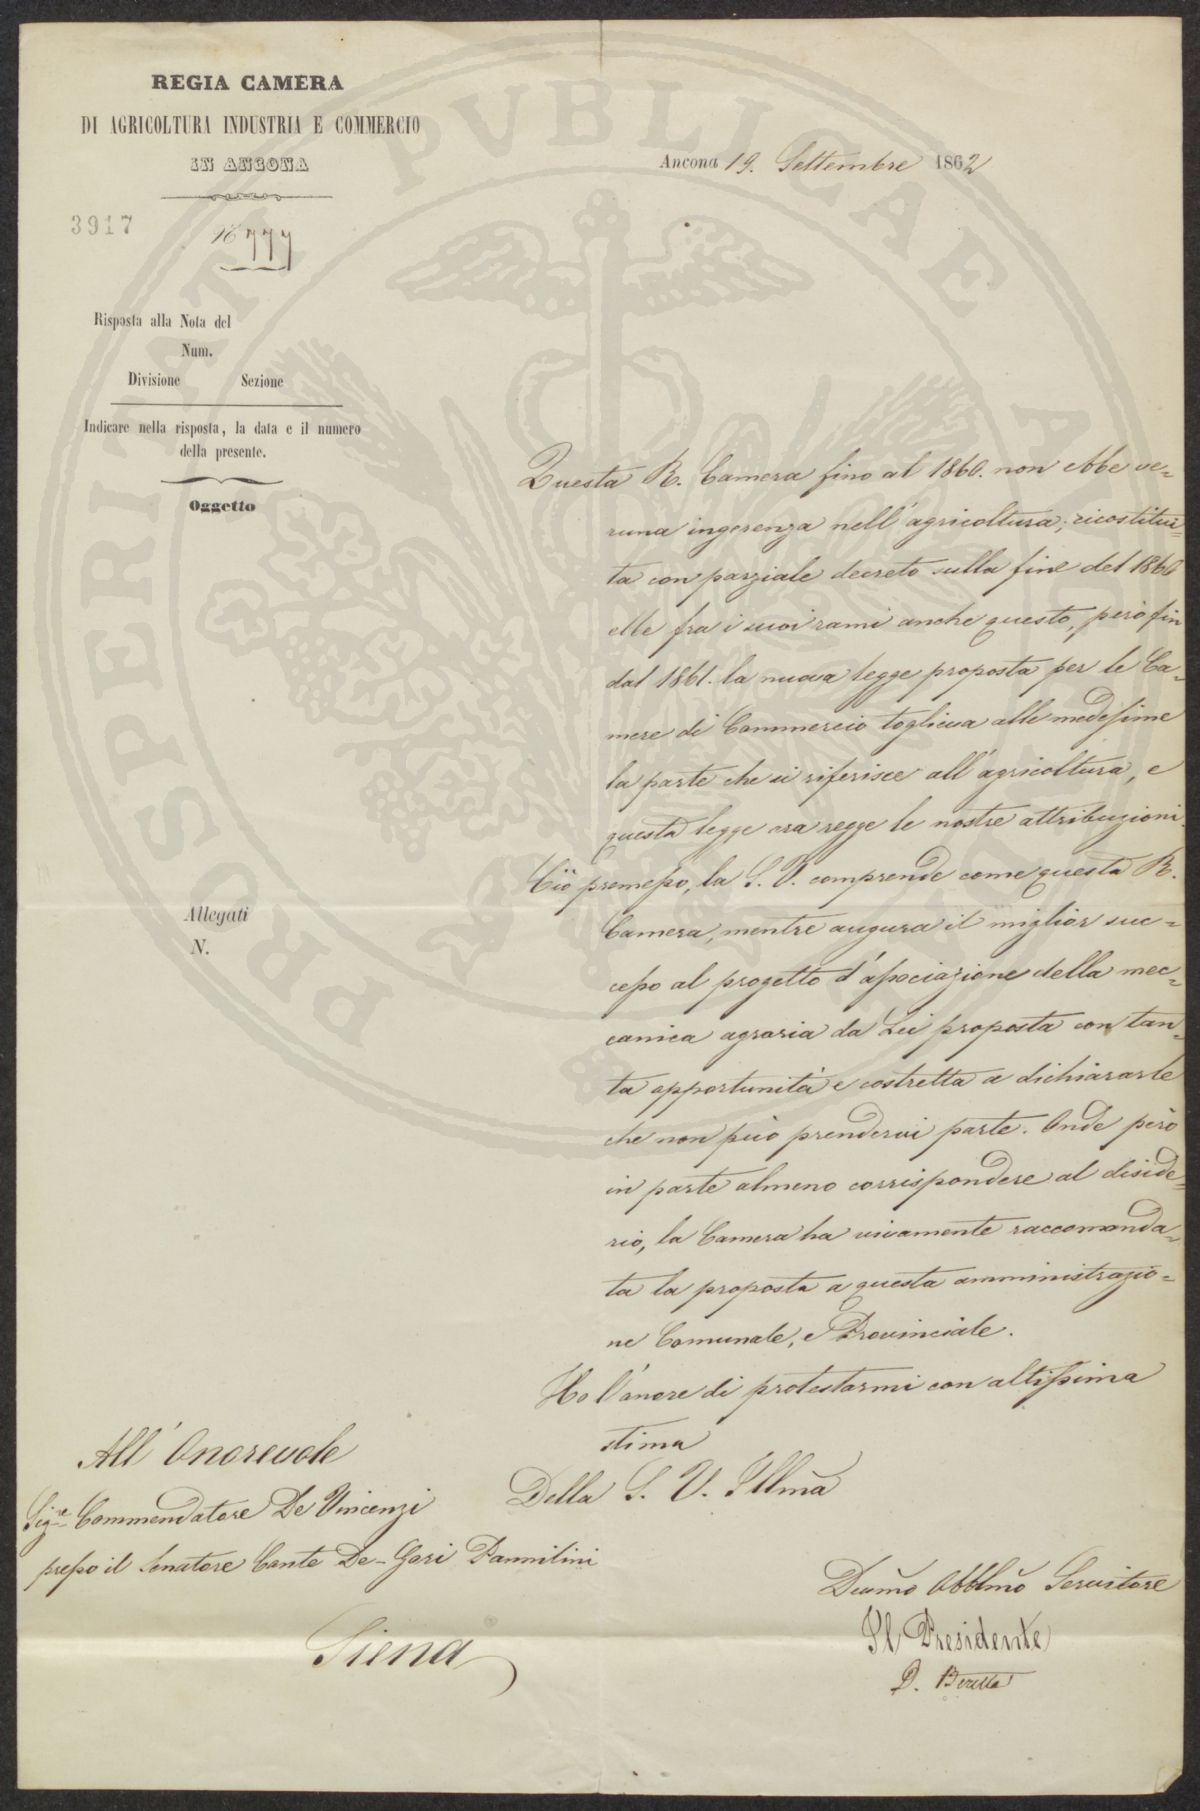 REGIA CAMERA
DI AGRICOLTURA INDUSTRIA E COMMERCIO
IN ANCONA
Ancona 19. Settembre 1862
3917
Risposta alla Nota del
Num.
Divisione Sezione
Indicare nella risposta, la data e il numero
della presente.
Oggetto
Allegati
N.
Questa R. Camera fino al 1860. non ebbe ve-
runa ingerenza nell'agricoltura; ricostitui-
ta con parziale decreto sulla fine del 1860
ebbe fra i suoi rami anche questo, però fin
dal 1861. la nuova legge proposta per le Ca-
mere di Commercio toglieva alle medesime
la parte che si riferisce all'agricoltura, e
questa legge ora regge le nostre attribuzioni.
Ciò premesso, la S. V. comprende come questa R.
Camera, mentre augura il miglior suc-
cesso al progetto d'associazione della mec-
canica agraria da Lei proposta con tan-
ta opportunità e costretta a dichiararle
che non può prendervi parte. Onde però
in parte almeno corrispondere al diside-
rio, la Camera ha vivamente raccomanda-
ta la proposta a questa amministrazio-
ne Comunale, e Provinciale.
Ho l'onore di protestarmi con altissima
stima
Della S. V. Illma
Devmo Obblmo Servitore
Il Presidente
D. Beretta
All' Onorevole
Sigre Commendatore De Vincenzi
presso il Senatore Conte De-Gori Pannilini
Siena
PROSPERITATI PUBLICAE